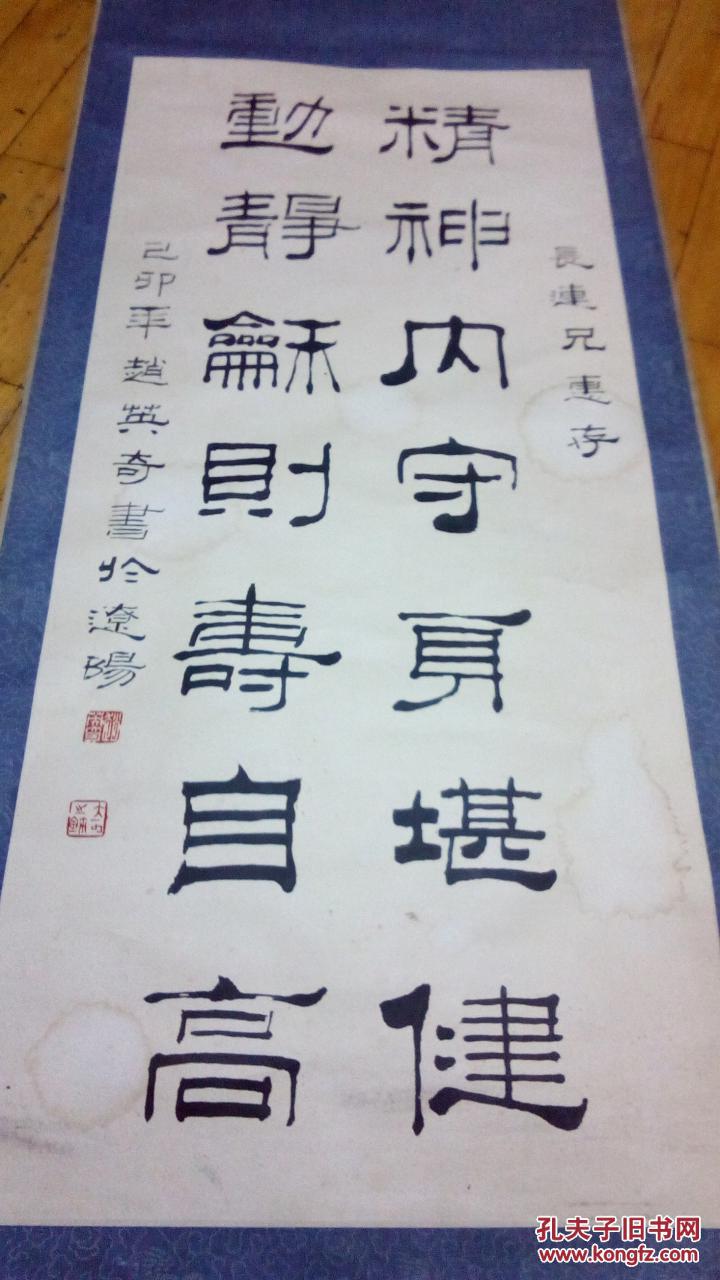 長連兄惠存
精神内守身堪健
動靜龢則壽自高
己卯年趙英奇書於遼陽
孔夫子旧书网
www.kongfz.com